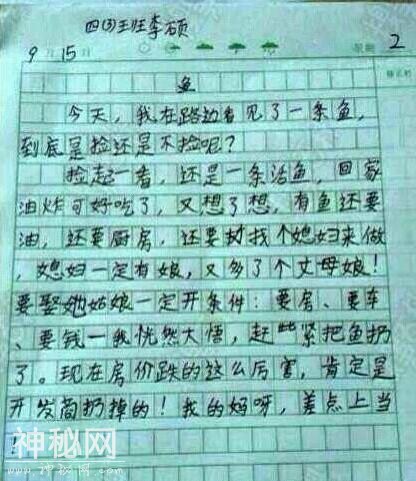 四(3)班李硕
9月15日 星期 2
鱼
今天,我在路边看见了一条鱼,
到底是捡还是不捡呢?
捡起一看,还是一条活鱼,回家
油炸可好吃了,又想了想,有鱼还要
油,还要厨房,还要找个媳妇来做
,媳妇一定有娘,又多了个丈母娘!
要娶她姑娘一定开条件:要房、要车
、要钱一我恍然大悟,赶紧把鱼扔
了。现在房价跌的这么厉害,肯定是
开发商扔掉的!我的妈呀,差点上当
!
神秘网